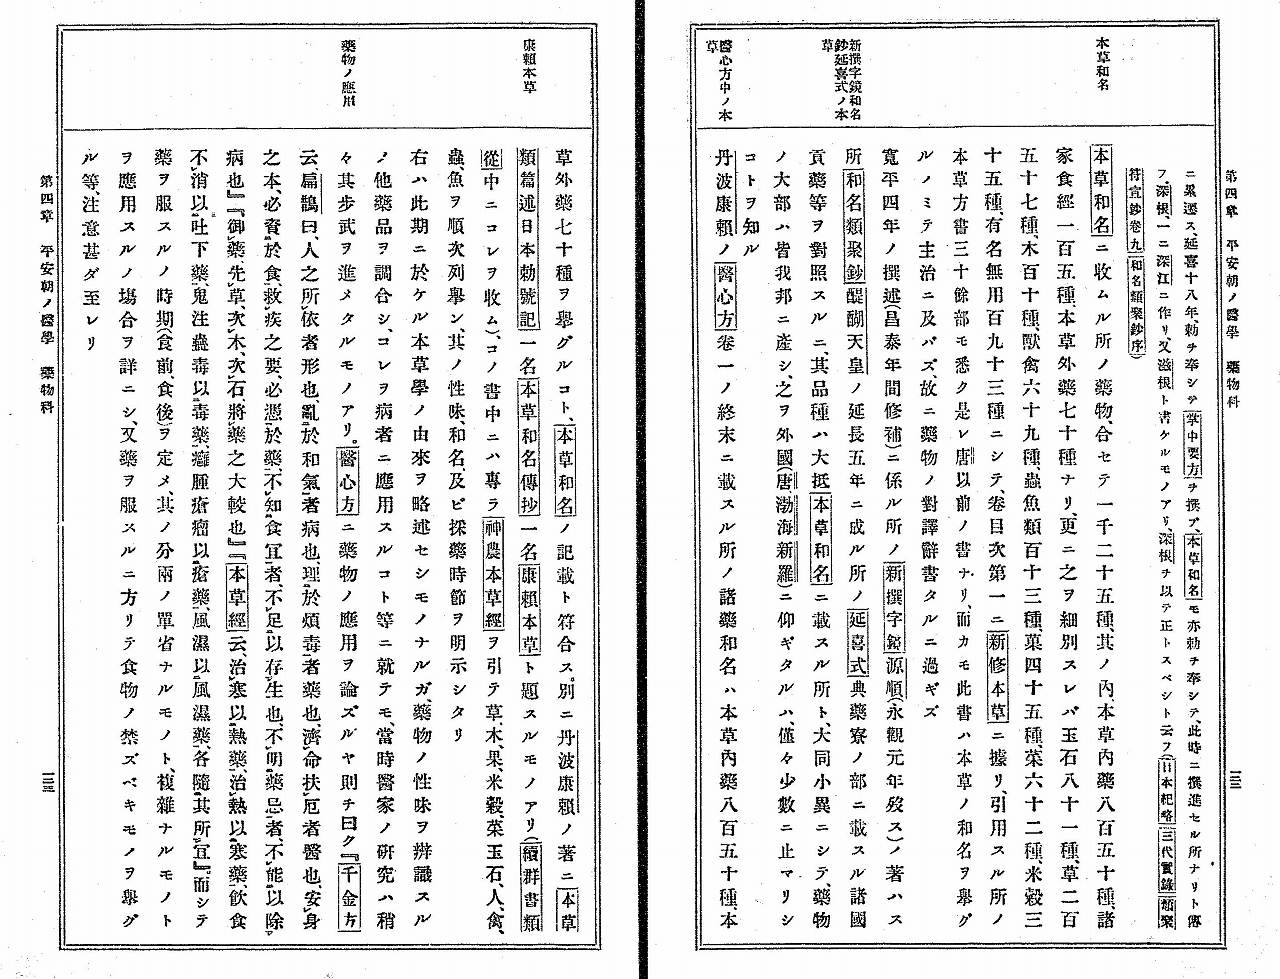 第四章　平安朝ノ醫學　藥物科
一三二
本草和名
新撰字鏡和名
鈔延喜式ノ本
草
醫心方中ノ本
草
ニ累遷ス、延喜十八年、勅ヲ奉シテ掌中要方ヲ撰ア、本草和名モ亦勅ヲ奉シテ、此時ニ撰進セル所ナリト傳
フ、深根、一ニ深江ニ作リ、又滋根ト書ケルモノアリ、深根ヲ以テ正トスベシト云フ(日本紀略三代實錄類聚
符宣鈔卷九和名類聚鈔序)
本草和名ニ收ムル所ノ藥物、合セテ一千二十五種、其ノ內、本草內藥八百五十種、諸
家食經一百五種、本草外藥七十種ナリ、更ニ之ヲ細別スレバ玉石八十一種、草二百
五十七種、木百十種、獸禽六十九種、蟲魚類百十三種、菓四十五種、菜六十二種、米穀三
十五種、有名無用百九十三種ニシテ、卷目次第一ニ新修本草ニ據リ、引用スル所ノ
本草方書三十餘部モ悉ク是レ唐以前ノ書ナリ、而カモ此書ハ本草ノ和名ヲ舉グ
ルノミテ主治ニ及バズ、故ニ藥物ノ對譯辭書タルニ過ギズ
寬平四年ノ撰述(昌泰年間修補)ニ係ル所ノ新撰字鏡源順(永觀元年歿ス)ノ著ハス
所和名類聚鈔醍醐天皇ノ延長五年ニ成ル所ノ延喜式典藥寮ノ部ニ載スル諸國
貢藥等ヲ對照スルニ、其品種ハ大抵本草和名ニ載スル所ト、大同小異ニシテ、藥物
ノ大部ハ皆我邦ニ產シ、之ヲ外國(唐渤海新羅)ニ仰ギタルハ、僅々少數ニ止マリシ
コトヲ知ル
丹波康賴ノ醫心方卷一ノ終末ニ載スル所ノ諸藥和名ハ本草內藥八百五十種、本
康賴本草
藥物ノ應用
草外藥七十種ヲ舉グルコト、本草和名ノ記載ト符合ス。別ニ丹波康賴ノ著ニ本草
類篇述日本勅號記一名本草和名傳抄一名康賴本草ト題スルモノアリ(續群書類
從中ニコレヲ收ム)、コノ書中ニハ專ラ神農本草經ヲ引テ草、木、果、米穀、菜、玉石、人、禽、
蟲、魚ヲ順次列舉シ、其ノ性味、和名、及ビ採藥時節ヲ明示シタリ
右ハ此期ニ於ケル本草學ノ由來ヲ略述セシモノナルガ、藥物ノ性味ヲ辨識スル
ノ他藥品ヲ調合シ、コレヲ病者ニ應用スルコト等ニ就テモ、當時醫家ノ研究ハ稍
々其步武ヲ進メタルモノアリ。醫心方ニ藥物ノ應用ヲ論ズルヤ則チ曰ク『千金方
云、扁鵲曰、人之所依者形也、亂於和氣者病也、理於煩毒者藥也、濟命扶厄者醫也、安身
之本、必資於食、救疾之要、必憑於藥、不知食宜者、不足以存生也、不明藥忌者、不能以除
病也』『御藥、先草、次木、次石、將藥之大較也』『本草經云、治寒以熱藥、治熱以寒藥、飲食
不消以吐下藥、鬼注蠱毒以毒藥、癰腫瘡瘤以瘡藥、風濕以風濕藥、各隨其所宜』。而シテ
藥ヲ服スルノ時期(食前、食後)ヲ定メ、其ノ分兩ノ單省ナルモノト、複雜ナルモノト
ヲ應用スルノ場合ヲ詳ニシ、又藥ヲ服スルニ方リテ食物ノ禁ズベキモノヲ舉グ
ル等、注意甚ダ至レリ
第四章　平安朝ノ醫學　藥物科
一三三